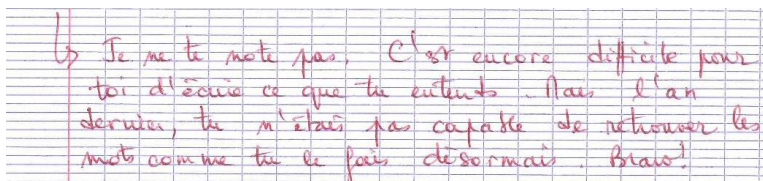 ↳ Je ne te note pas. C'est encore difficile pour
toi d'écrire ce que tu entends. Mais l'an
dernier, tu n'étais pas capable de retrouver les
mots comme tu le fais désormais. Bravo!